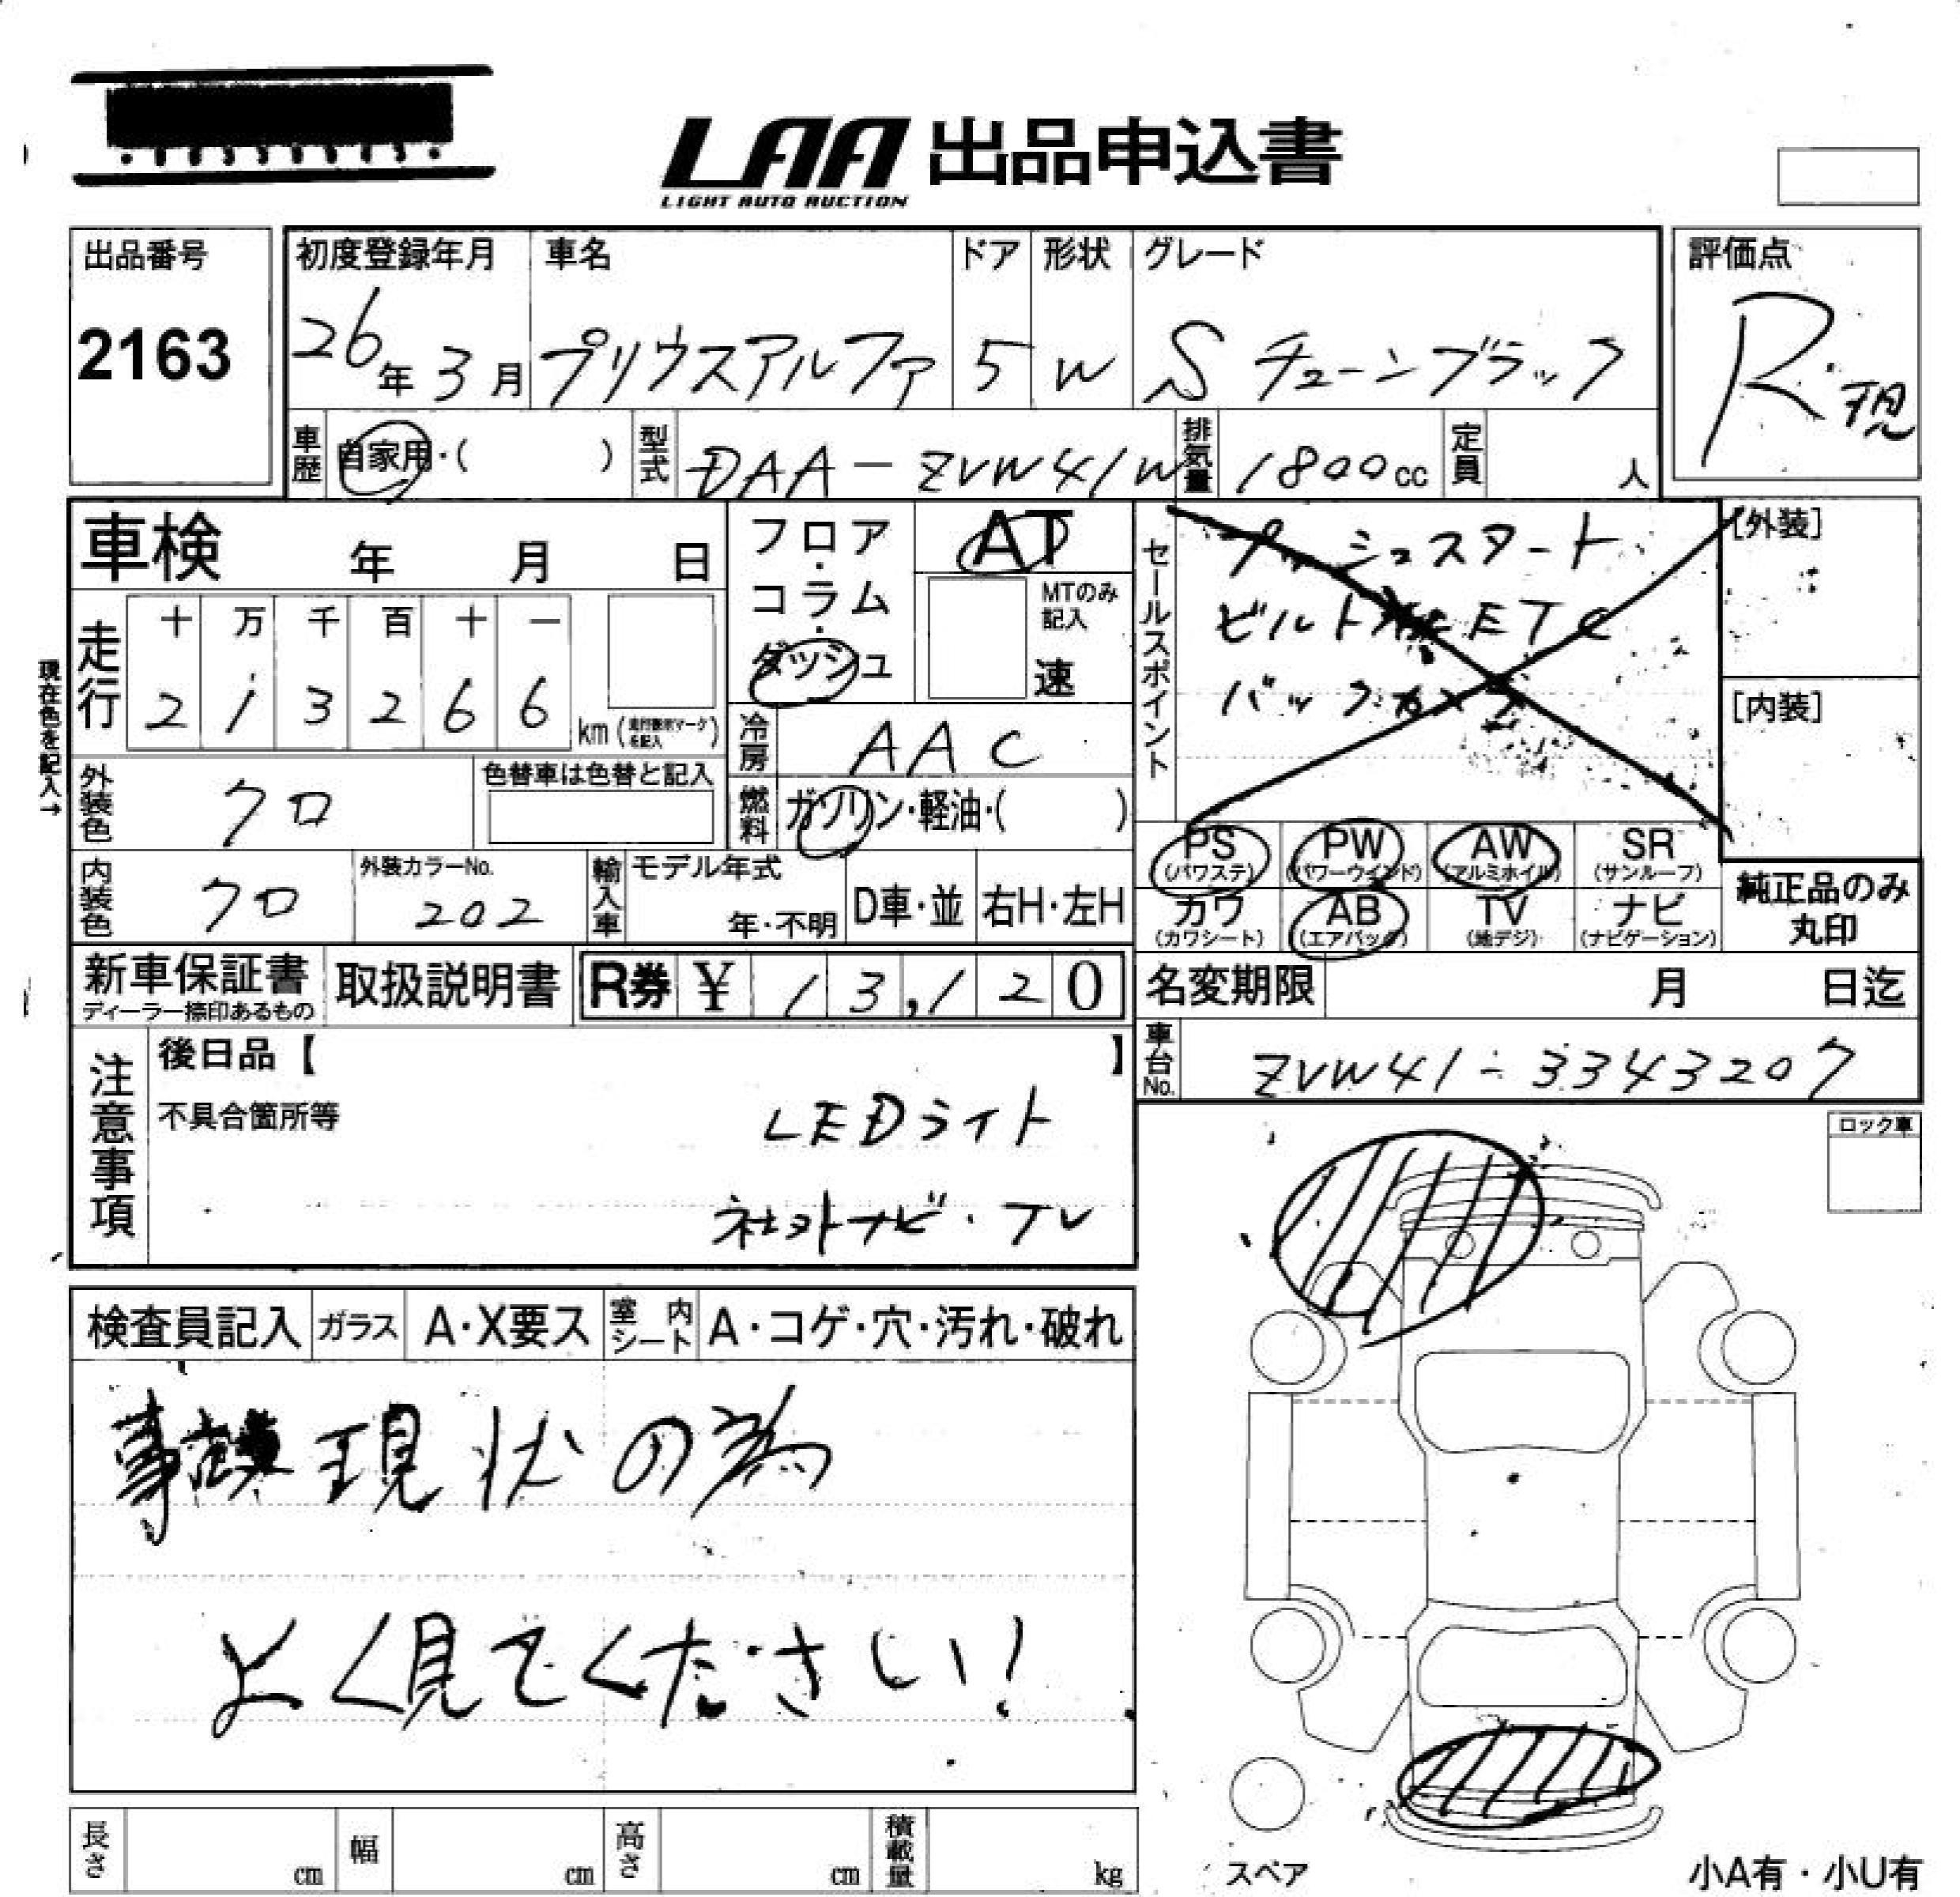 LAA 出品申込書
LIGHT AUTO AUCTION
出品番号
2163
初度登録年月
26年3月
車名
プリウスアルファ
ドア
5
形状
W
グレード
Sチューンブラック
評価点
R 現
車歴 自家用・( )
型式 DAA-ZVW41W
排気量 1800cc
定員 人
車検 年 月 日
フロア・コラム・ダッシュ
AT
MTのみ記入
速
現在色を記入→
走行
十 万 千 百 十 一
2 1 3 2 6 6 km
冷房 AAC
燃料 ガソリン・軽油・( )
外装色 クロ
色替車は色替と記入
内装色 クロ
外装カラーNo.
202
輸入車 モデル年式
年・不明
D車・並
右H・左H
セールスポイント
プッシュスタート
ビルトインETC
バックカメラ
[外装]
[内装]
PS (パワステ)
PW (パワーウインド)
AW (アルミホイル)
SR (サンルーフ)
カワ (カワシート)
AB (エアバック)
TV (地デジ)
ナビ (ナビゲーション)
純正品のみ丸印
新車保証書
ディーラー捺印あるもの
取扱説明書
R券 ¥ 13,120
名変期限 月 日迄
車台No. ZVW41-3343207
注意事項
後日品【 】
不具合箇所等
LEDライト
社外ナビ・TV
ロック車
検査員記入 ガラス A・X要ス 室内シート A・コゲ・穴・汚れ・破れ
現状の為
よく見てください!
長さ cm
幅 cm
高さ cm
積載量 kg
スペア
小A有・小U有